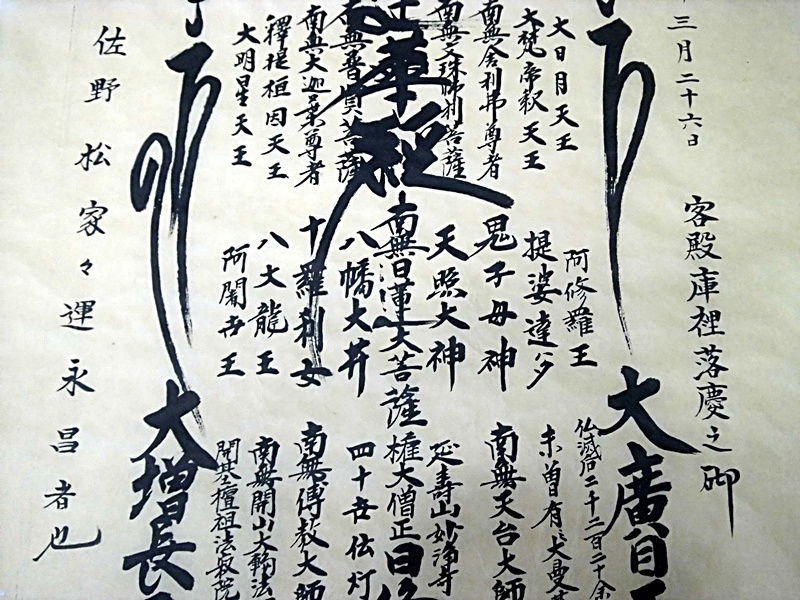 三月二十六日
客殿庫裡落慶之砌
大廣目
大日月天王
阿修羅王
仏滅后二千二百二十余
大梵帝釈天王
提婆達多
未曽有之大曼荼
南無舎利弗尊者
鬼子母神
南無天台大師
南無文殊師利菩薩
天照大神
延寿山妙海寺
華経
南無日蓮大菩薩
権大僧正日
南無普賢菩薩
八幡大菩薩
四十世伝灯
南無大迦葉尊者
十羅刹女
南無傳教大師
釋提桓因天王
八大龍王
南無開山大
大明星天王
阿闍世王
開基檀祖法寂院
大増長
佐野松家々運永昌者也